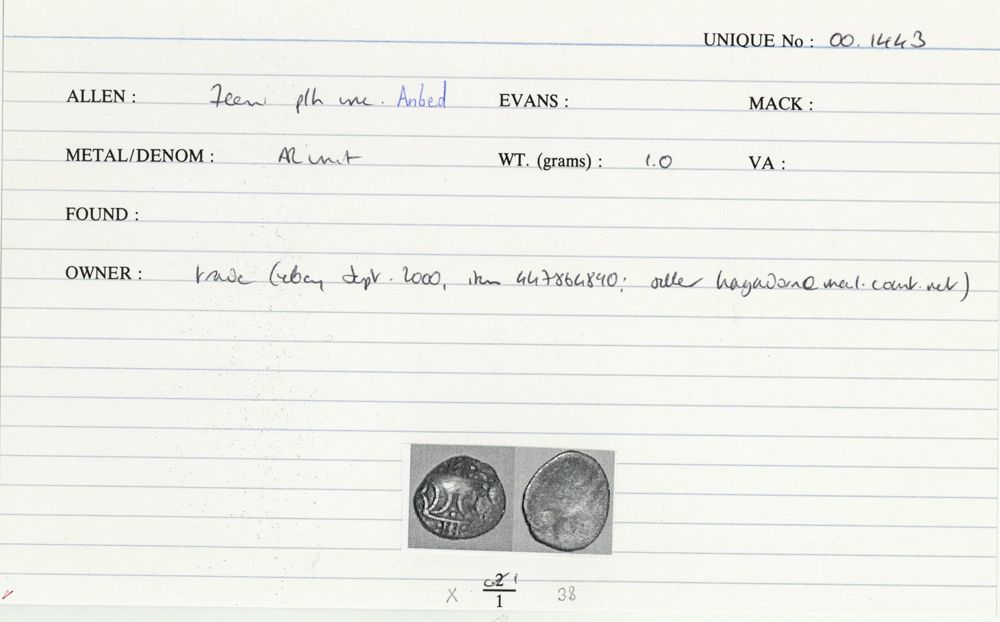 UNIQUE No : 00.1443
ALLEN : Iceni pth unc. Anbed EVANS : MACK :
METAL/DENOM : AR unit WT. (grams) : 1.0 VA :
FOUND :
OWNER : trade (ebay Sept. 2000, item 447864840; seller
X 38
1